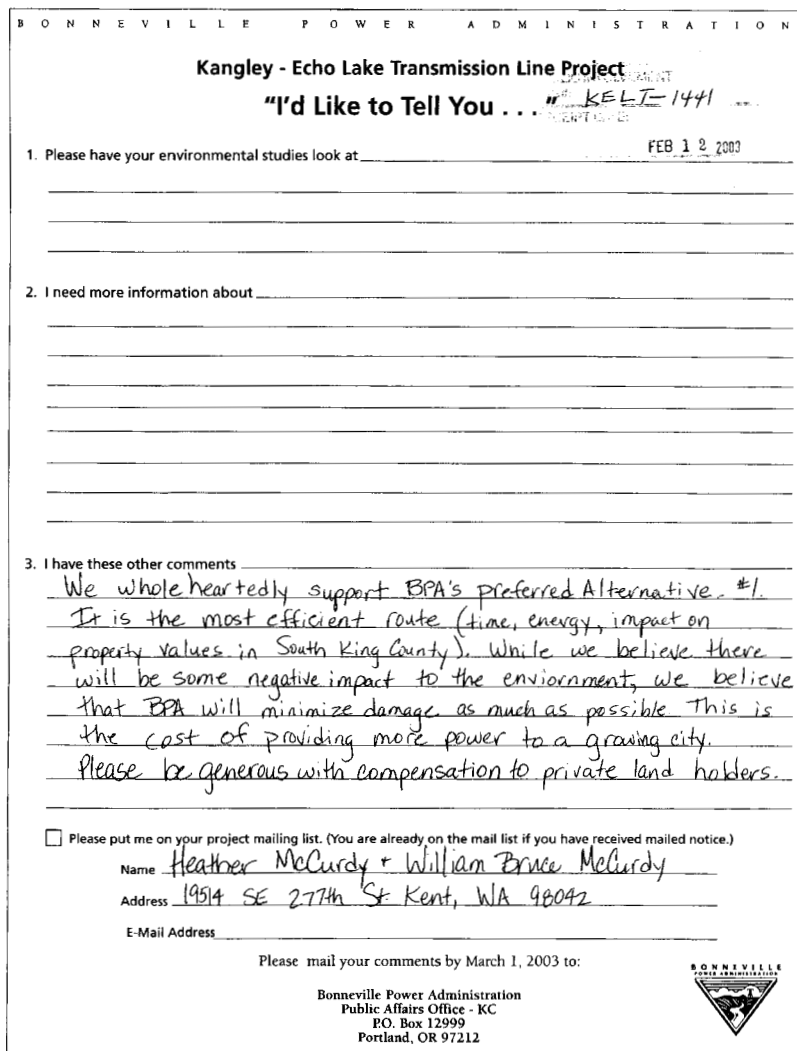 BONNEVILLE POWER ADMINISTRATION
Kangley - Echo Lake Transmission Line Project
"I'd Like to Tell You . . ." KELT-1441
FEB 1 2 2003
1. Please have your environmental studies look at
2. I need more information about
3. I have these other comments
We wholeheartedly support BPA's preferred Alternative. #1.
It is the most efficient route (time, energy, impact on
property values in South King County). While we believe there
will be some negative impact to the enviornment, we believe
that BPA will minimize damage as much as possible This is
the cost of providing more power to a growing city.
Please be generous with compensation to private land holders.
Please put me on your project mailing list. (You are already on the mail list if you have received mailed notice.)
Name Heather McCurdy + William Bruce McCurdy
Address 19514 SE 277th St. Kent, WA 98042
E-Mail Address
Please mail your comments by March 1, 2003 to:
Bonneville Power Administration
Public Affairs Office - KC
P.O. Box 12999
Portland, OR 97212
BONNEVILLE
POWER ADMINISTRATION